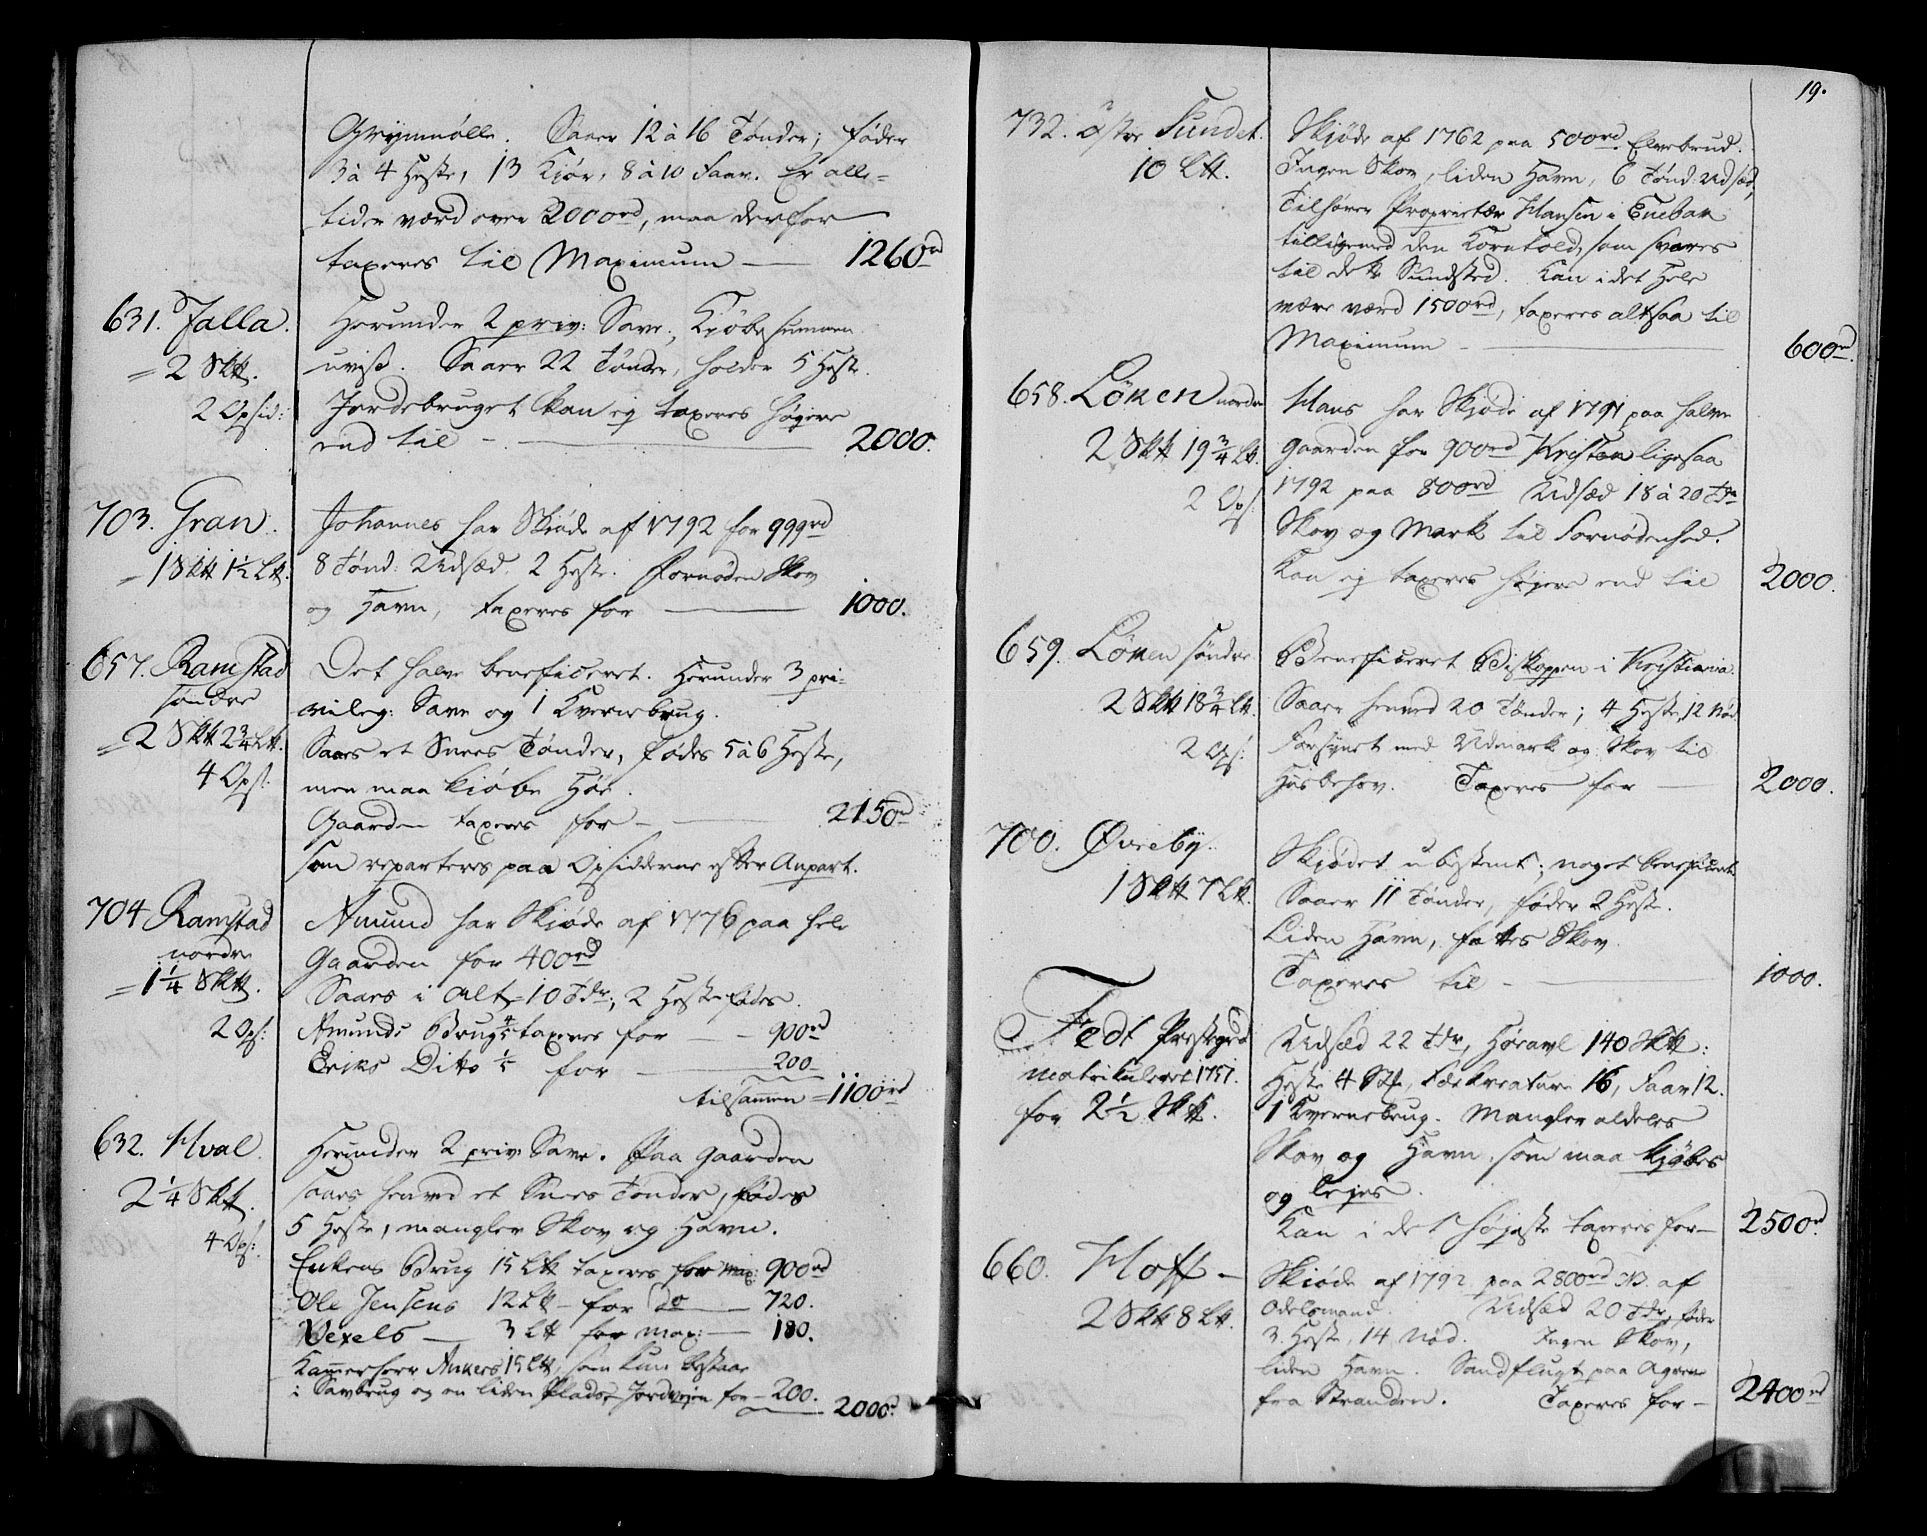 Grynmølle. Saaer 12 à 16 Tønder; føder
3 à 4 Heste, 13 Kiør, 8 à 10 Faar. Er alle-
tider værd over 2000rd, maa derfor
taxeres til Maximum — 1260rd
631. Jalla.
= 2 Skt.
2 Opsid:
Herunder 2 priv: Save; Kjøbesummen
uviss. Saaer 22 Tønder, holder 5 Heste.
Jordebruget kan ej taxeres høyere
end til — 2000.
703. Gran.
= 1 Skt 1½ Lt.
Johannes har Skiøde af 1792 for 999rd
8 Tønd: Udsæd, 2 Heste. Fornøden Skov
og Havn, taxeres for — 1000.
657. Ramstad
søndre
= 2 Skt 2¾ Lt.
4 Ops:
Det halve beneficeret. Herunder 3 pri-
vileg: Save og 1 Kvernebrug.
Saaes et Snees Tønder, fødes 5 à 6 Heste,
men maa kiøbe Høe.
Gaarden taxeres for — 2150rd
som reparteres paa Opsidderne efter Anpart.
704 Ramstad
nordre
= 1¼ Skt.
2 Ops:
Amund har Skjøde af 1776 paa hele
Gaarden for 400rd
Saaes i alt = 10 Tdr, 2 Heste fødes.
Amunds Brug ⅘ taxeres for — 900rd
Eriks Ditto ⅕ for — 200
tilsammen = 1100rd
632. Hval.
2¼ Skt.
4 Ops:
Herunder 2 priv Save. Paa Gaarden
saaes henved et Snees Tønder, fødes
5 Heste, mangler Skov og Havn.
Enkens Brug 15 Lt taxeres for max: 900rd
Ole Jensens 12 Lt — for do — 720.
Wexels — 3 Lt for max: — 180.
Kammerherr Ankers 15 Lt, som kun bestaar
i Savbrug og en liden Plads Jordvejen for — 200.
2000rd
19.
732. Østre Sundet.
10 Lt.
Skjøde af 1762 paa 500rd. Elvebrud.
Ingen Skov, liden Havn, 6 Tønd: Udsæd,
Tilhører Proprietær Hansen i
tilligemed den Korntold, som svares
til dette Sundsted. Kan i det Hele
være værd 1500rd, taxeres altsaa til
Maximum — 600rd.
658. Løken nordre
2 Skt 19¾ Lt.
2 Ops:
Hans har Skjøde af 1791 paa halve
Gaarden for 900rd Kristen ligesaa
1792 paa 800rd Udsæd 18 à 20 Tdr
Skov og Mark til Fornødenhed.
Kan ej taxeres høyere end til 2000.
659. Løken søndre
2 Skt 18¾ Lt.
2 Ops:
Beneficeret Biskoppen i Kristiania.
Saaer henved 20 Tønder; 4 Heste, 12 Nød
Forsynet med Udmark og Skov til
Husbehov. Taxeres for — 2000.
700. Øvreby.
1 Skt 7 Lt.
Skjødet ubestemt; noget beneficeret
Saaer 11 Tønder, føder 2 Heste.
Liden Havn, fattes Skov.
Taxeres til — 1000.
Fedt Prestegrd
matrikuleret 1757.
for 2½ Skt.
Udsæd 22 Tdr, Høeavl 140 Skt:
Heste 4 Stk, Fækreature 16, Faar 12.
1 Kvernebrug. Mangler aldeles
Skov og Havn, som maa kjøbes
og lejes.
Kan i det høyeste taxeres for — 2500rd.
660. Hoff —
2 Skt 8 Lt.
Skiøde af 1792 paa 2800rd NB. af
Odelsmand. Udsæd 20 Tdr, føder
3. Heste, 14 Nød. Ingen Skov,
liden Havn. Sandflugt paa Agrene
fra Stranden. Taxeres for — 2400rd